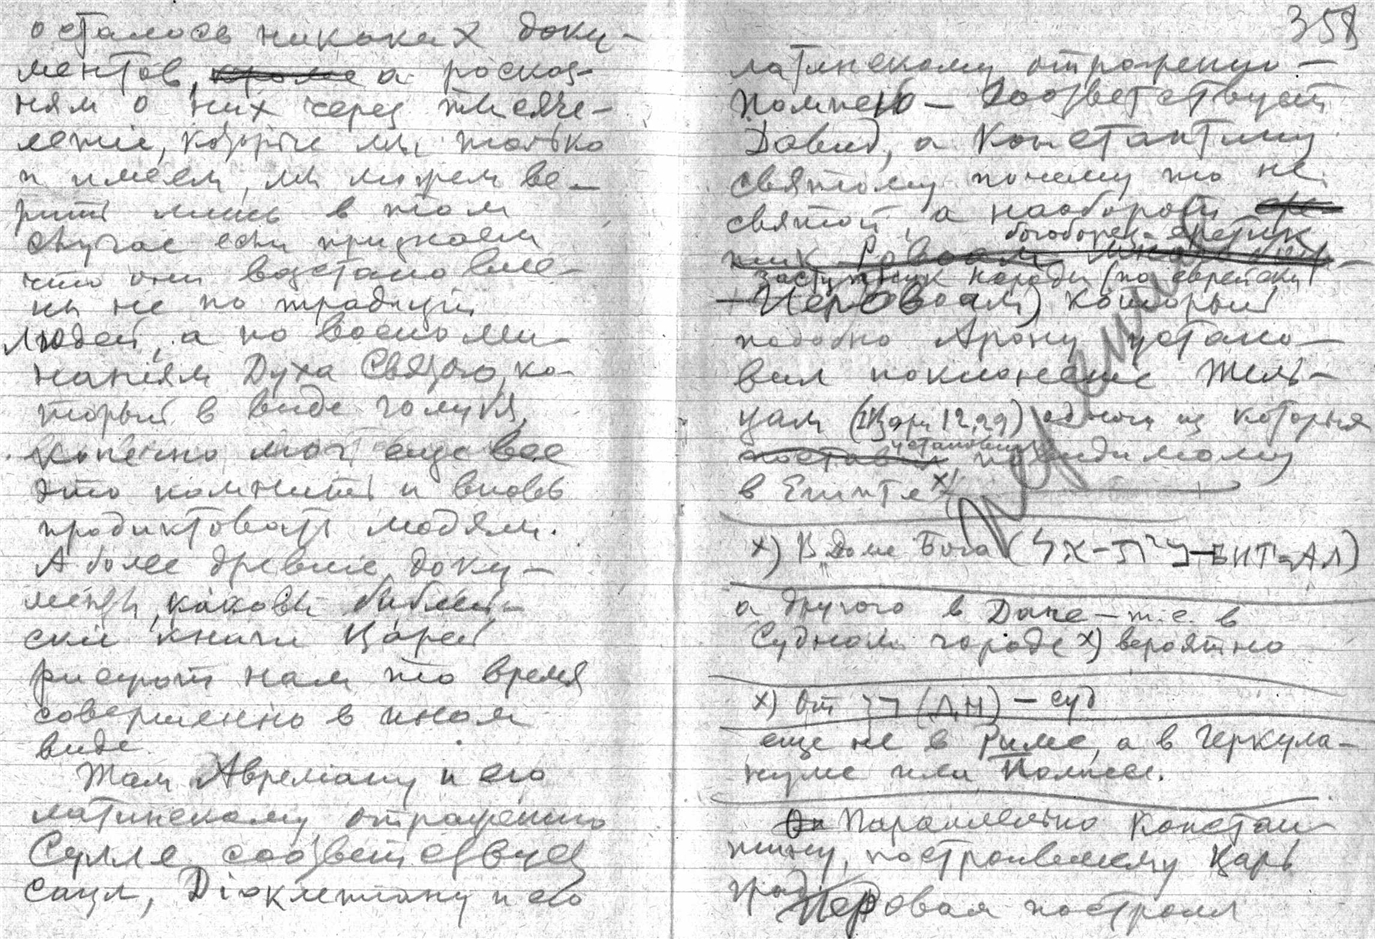 осталось никаких доку-
ментов, кроме а роскоз-
ням о них через тысяче-
летие, которые мы только
и имеем, мы можем ве-
рить лишь в том
случае если признаем
что они возстановле-
ны не по традиции
людей, а по воспоми-
наніям Духа Святого, ко-
торый в виде голубя,
конечно мог еще все
это помнить и вновь
продиктовать людям.
А более древніе доку-
менты, каковы библей-
ски книги Царей
рисуют нам то время
совершенно в ином
виде.
Там Авреліану и его
латинскому отражению
Сулле соответствует
Саул, Діоклетіану и его
358
латинскому отражению —
Помпею — соответствует
Давид, а Константину
святому почему то не
святой, а наоборот
богоборец-еретик
заступник народа (по еврейски
— Иеровоам) который
подобно Арону устано-
вил поклонение Тель-
цам (IЦари 12,29) одного из которых
установил
поставил по видимому
в Египте х)
х) В Доме Бога ( – БИТ-АЛ)
а другого в Дане — т.е. в
Судном городе х) вероятно
х) От דן (ДН) — суд
еще не в Риме, а в Геркула-
нуме или Помпее.
Он Параллельно Констан-
тину, построившему Царь
град
Иеровоам построил